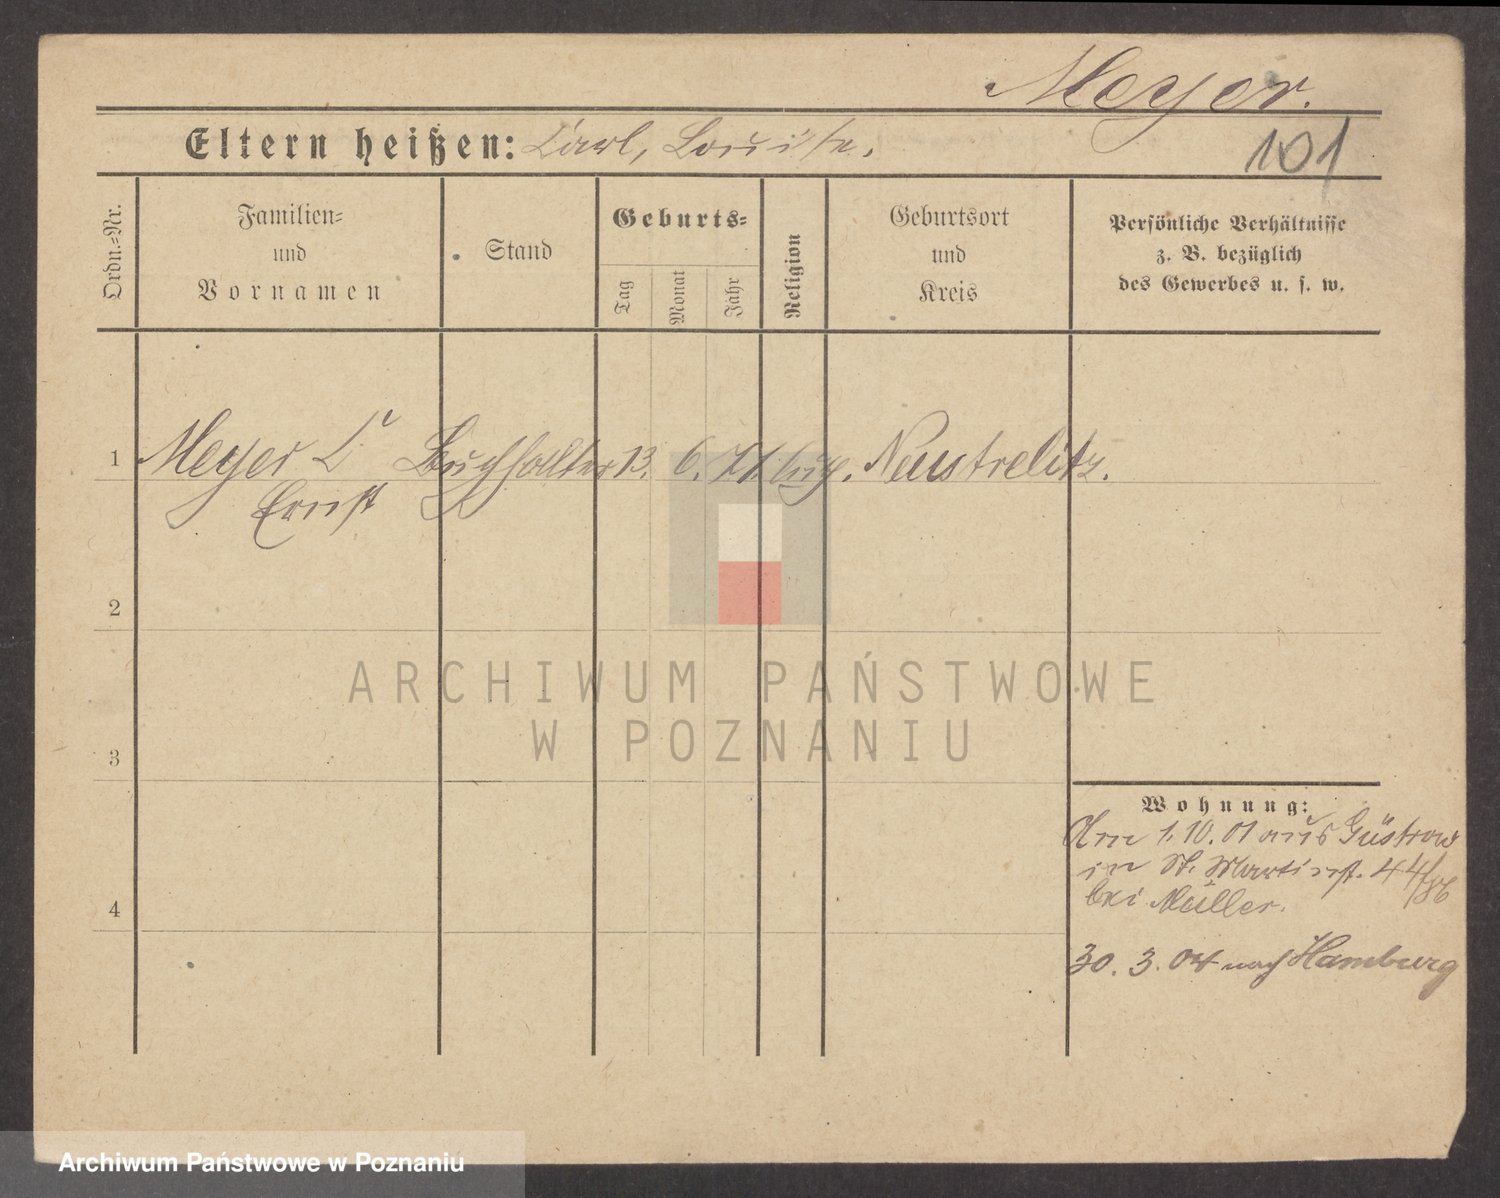 Meyer.
Eltern heißen: Carl, Louise.
101
Ordn.=Nr.
Familien=
und
Vornamen
Stand
Geburts=
Tag
Monat
Jahr
Religion
Geburtsort
und
Kreis
Persönliche Verhältnisse
z. B. bezüglich
des Gewerbes u. s. w.
1 Meyer Buchhalter 13. 6. 71. evg. Neustrelitz.
Ernst
2
ARCHIWUM PAŃSTWOWE
W POZNANIU
3
Wohnung:
Am 1.10.01 aus Güstrow
in St. Martinst. 44/
bei Müller.
4
30. 3. 04 nach Hamburg
Archiwum Państwowe w Poznaniu